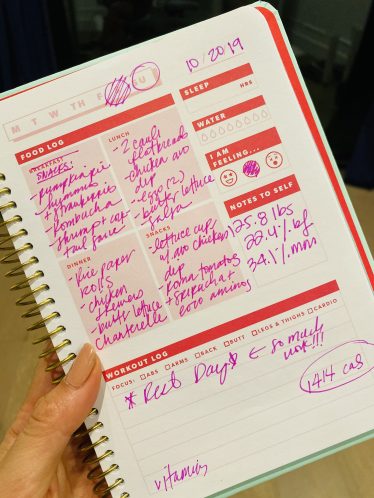 10/20/19
M T W TH F
FOOD LOG
BREAKFAST
SNACKS:
- pumpkin pie
hummus
+
- kombucha
- shrimp + cocktail
sauce
LUNCH
- 2 cauli
flatbreads
- chicken avo
dip
- egg (2)
- butter lettuce
- salsa
DINNER
- Rice paper
rolls
- chicken
skewers
- butter lettuce
- chanterelle
SNACKS
- lettuce cup
w/ avo chicken
dip
- roma tomatoes
+ sriracha +
coco aminos
SLEEP
HRS
WATER
I AM
FEELING...
NOTES TO SELF
125.8 lbs
22.4% bf
34.1% mm
WORKOUT LOG
FOCUS: ABS ARMS BACK BUTT LEGS & THIGHS CARDIO
* Rest Day * ← so much
work!!!
1414 cal
vitamins